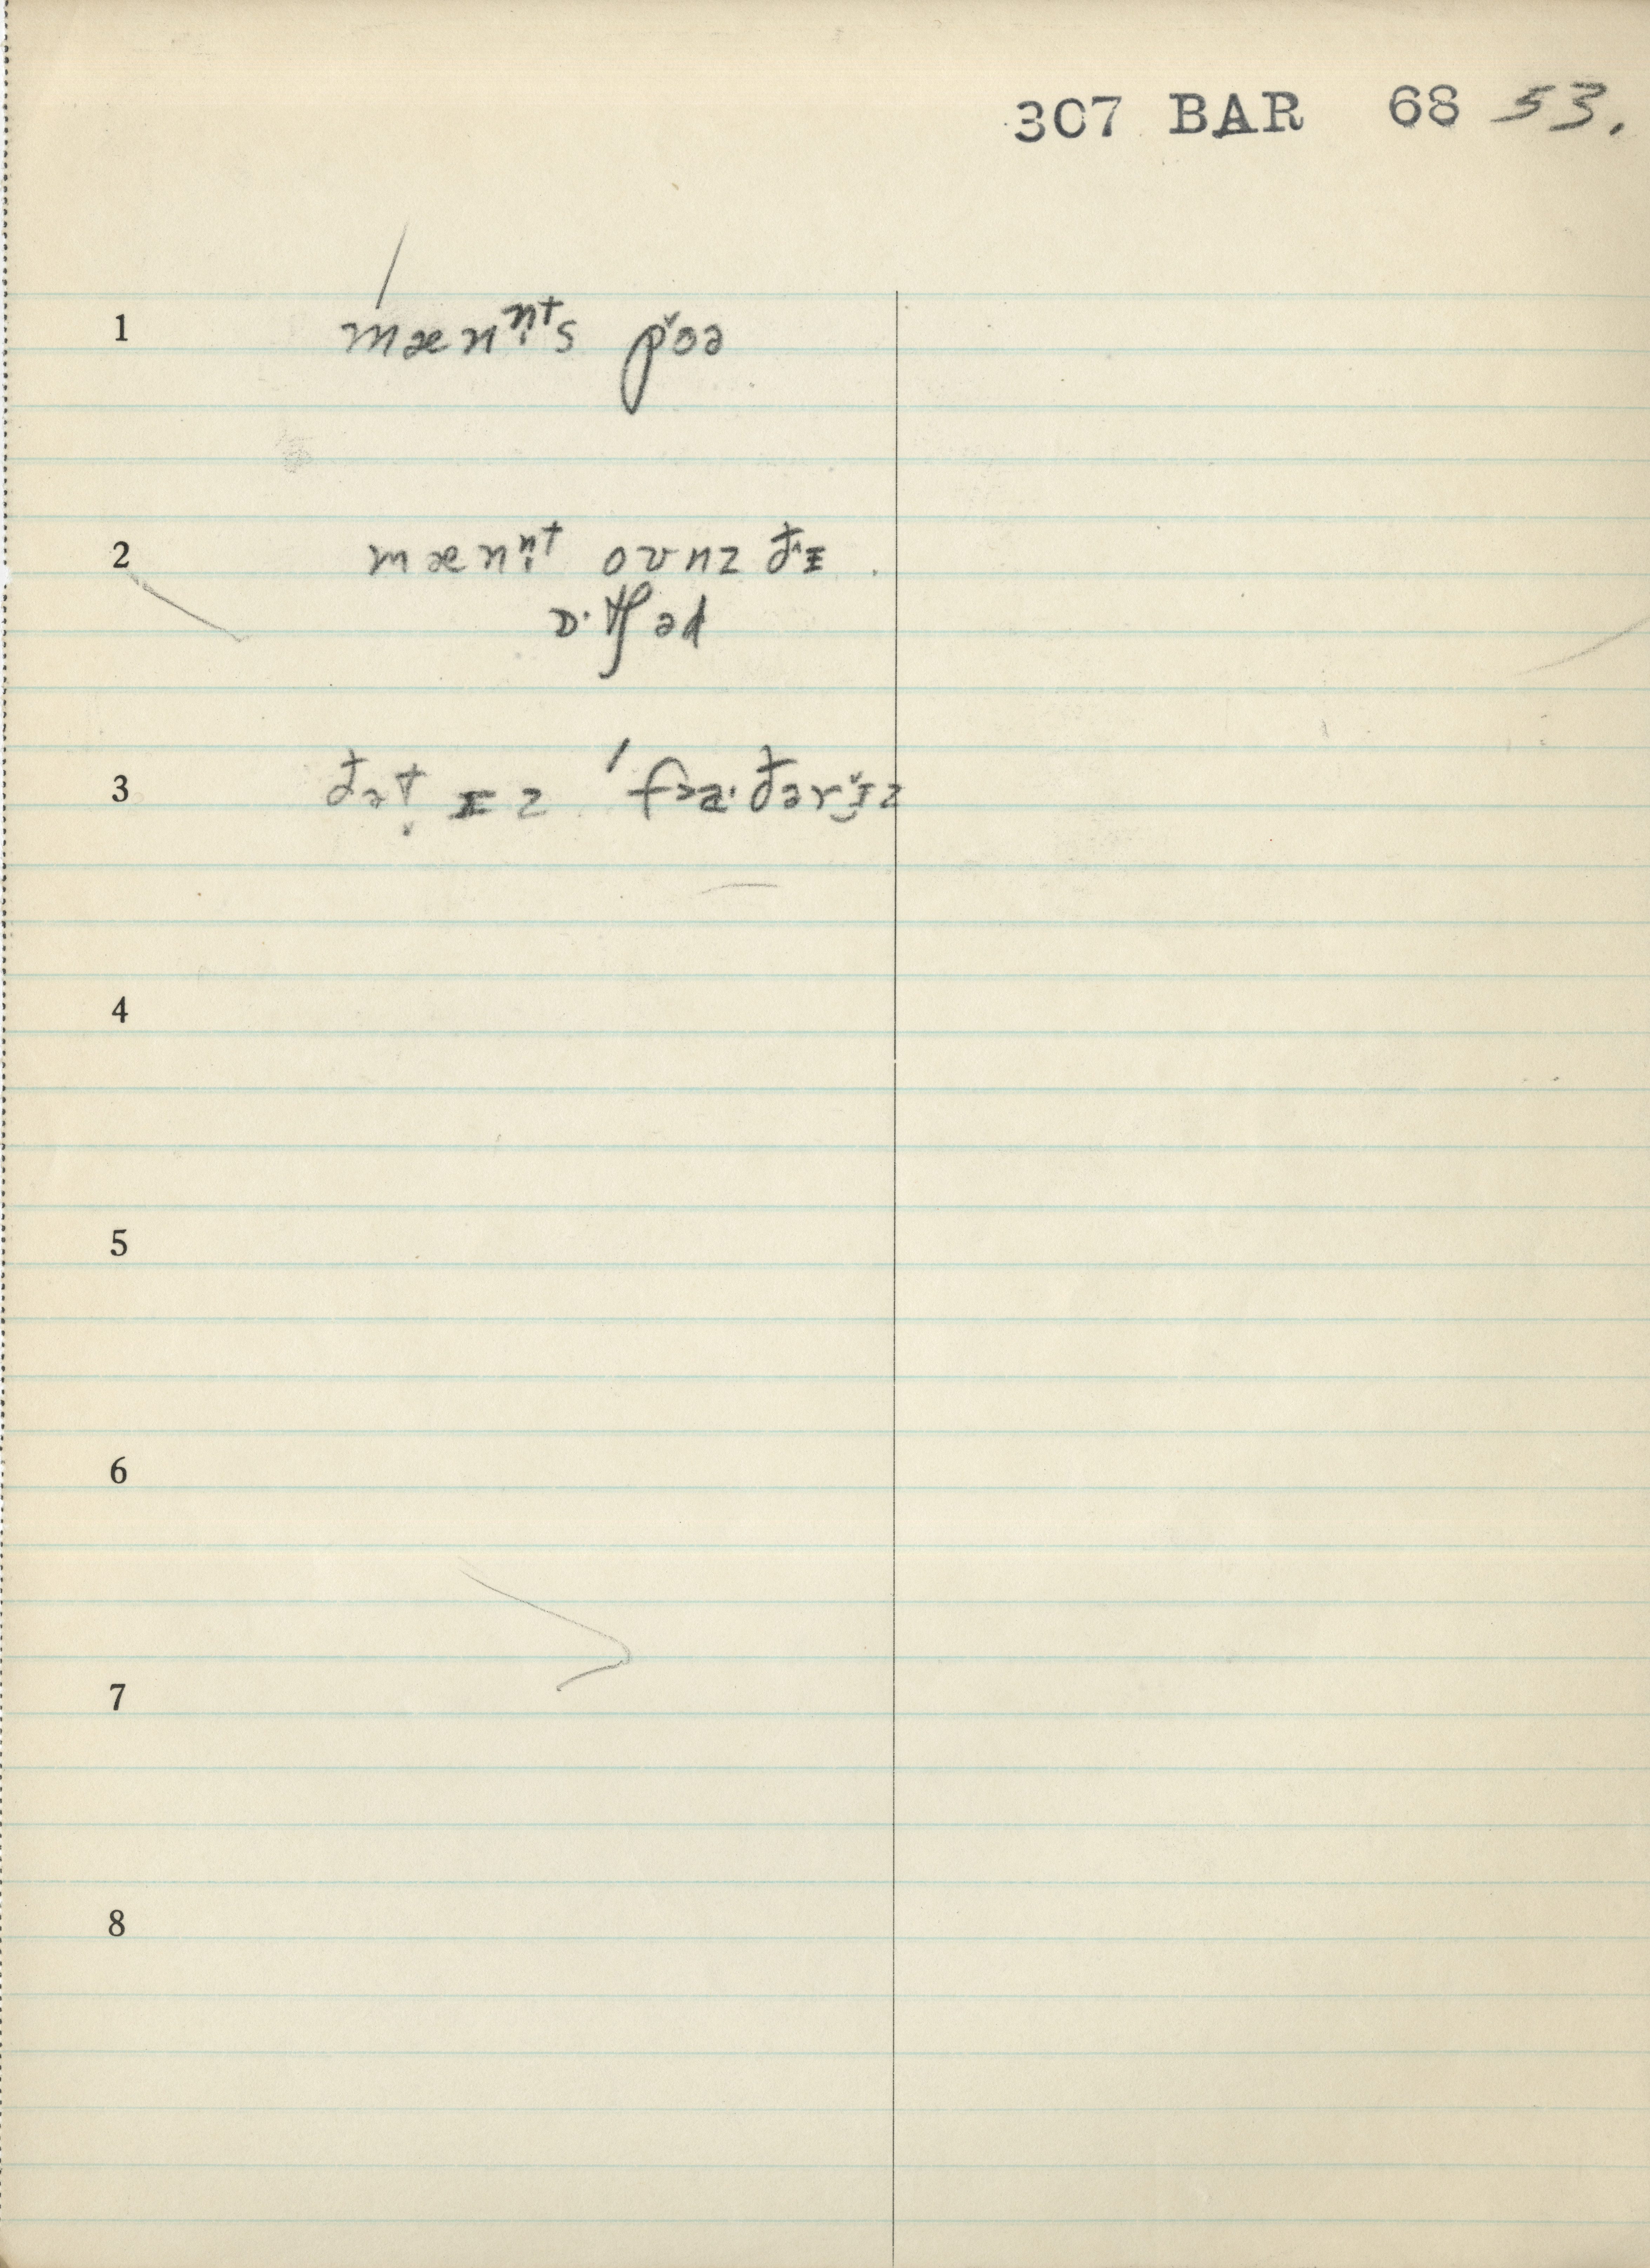 307 BAR 68 53.
1 mænn̩ts p̌oə
2 mænn̩t ovnz đɪ
ɒ·tʃəd
3 đət̬ ɪz ˈfɔa·đərɪ̯̌z
4
5
6
7
8